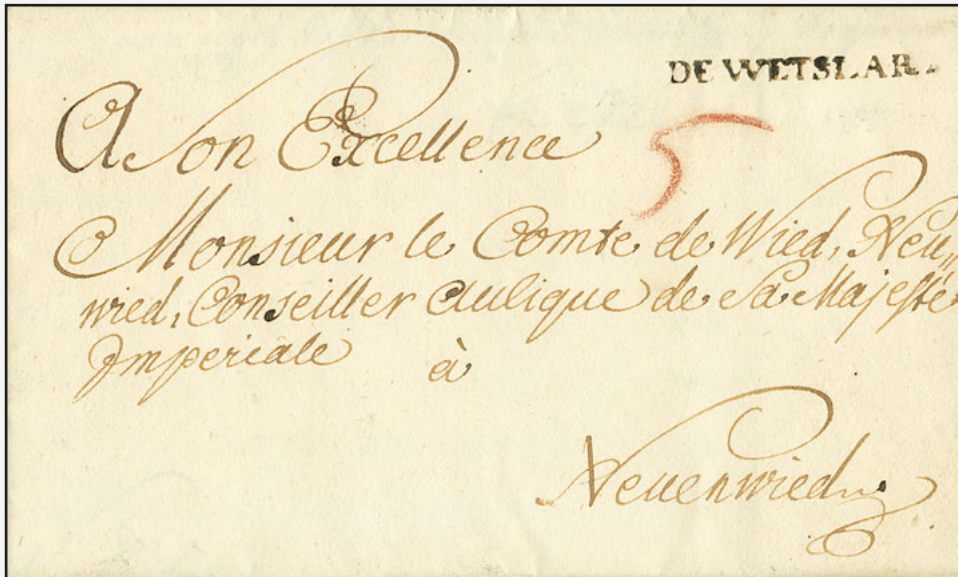 DE WETSLAR.
A Son Excellence
5
Monsieur le Comte de Wied, Neu„
wied, Conseiller Aulique de Sa Majesté
Imperiale à
Neuenwied